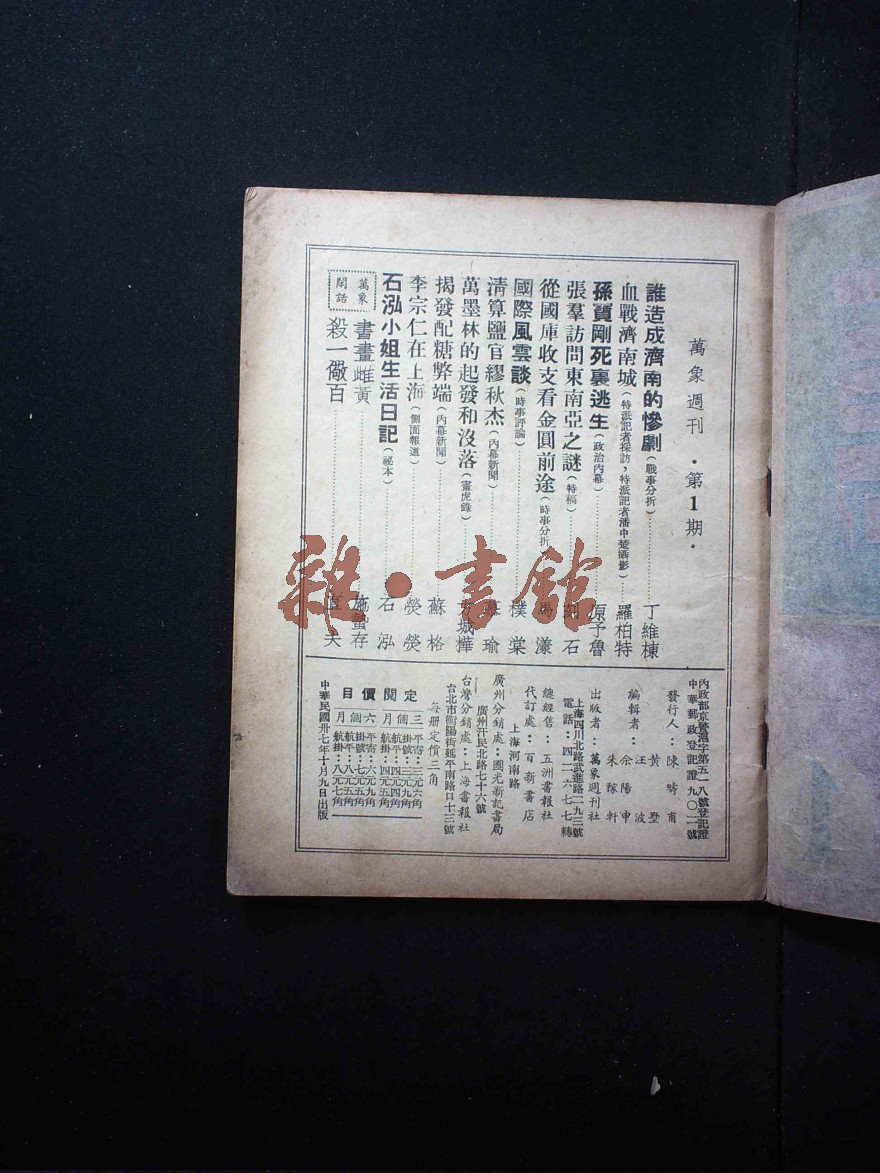 萬象週刊·第1期·
誰造成濟南的慘劇(戰事分折)……丁維棟
血戰濟南城(特派記者採訪,特派記者潘中楚攝影)……羅柏特
孫寶剛死裏逃生(政治內幕)……原予魯
張羣訪問東南亞之謎(特稿)……刻石
從國庫收支看金圓前途(時事分折)……馬濂
國際風雲談(時事評論)……樸棠
清算鹽官繆秋杰(內幕新聞)……瑜
萬墨林的起發和沒落(畫虎錄)……城樺
揭發配糖弊端(內幕新聞)……蘇格
李宗仁在上海(側面報道)……熒熒
石泓小姐生活日記(祕本)……石泓
萬象閒話
書畫雌黃……施蟄存
殺一儆百……直夫
內政部京警滬字第五一八號登記證
中華郵政登記證九〇二一號
發行人:陳時甫
編輯者:
黃墅
汪波
佘陽申
朱稼軒
出版者:萬象週刊社
上海四川北路武進路二九三號
電話:四二六七七轉
總經售:五洲書報社
代訂處:百新書店
上海河南路
廣州分銷處:國光新記書局
廣州汗民北路七十六號
台灣分銷處:上海書報社
台北市衡陽街延平南路口十三號
每冊定價三角
定閱價目
三個月
平寄:三元六角
掛號:三元九角
航平:四元四角
航掛:四元五角
六個月
平寄:六元九角
掛號:七元五角
航平:八元五角
航掛:八元七角
中華民國卅七年十月九日出版
雜·書館